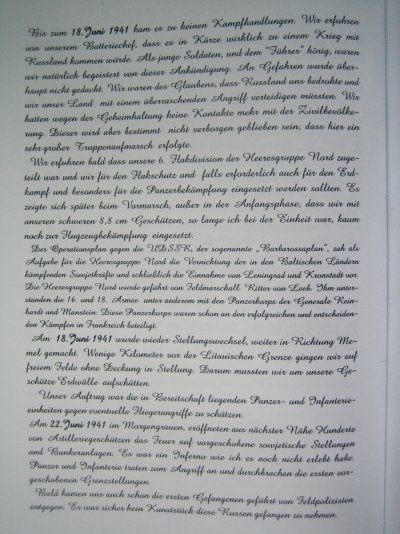 Bis zum 18.Juni 1941 kam es zu keinen Kampfhandlungen. Wir erfuhren
von unserem Batteriechef, dass es in Kürze wirklich zu einem Krieg mit
Russland kommen würde. Als junge Soldaten, und dem "Führer" hörig, waren
wir natürlich begeistert von dieser Ankündigung. An Gefahren wurde über-
haupt nicht gedacht. Wir waren des Glaubens, dass Russland uns bedrohte und
wir unser Land mit einem überraschenden Angriff verteidigen müssten. Wir
hatten wegen der Geheimhaltung keine Kontakte mehr mit der Zivilbevölke-
rung. Dieser wird aber bestimmt nicht verborgen geblieben sein, dass hier ein
sehr großer Truppenaufmarsch erfolgte.
Wir erfuhren bald dass unsere 6. Flakdivision der Heeresgruppe Nord zuge-
teilt war und wir für den Flakschutz und falls erforderlich auch für den Erd-
kampf und besonders für die Panzerbekämpfung eingesetzt werden sollten. Es
zeigte sich später beim Vormarsch, außer in der Anfangsphase, dass wir mit
unseren schweren 8,8 cm Geschützen, so lange ich bei der Einheit war, kaum
noch zur Flugzeugbekämpfung eingesetzt.
Der Operationsplan gegen die UDSSR, der sogenannte „Barbarossaplan", sah als
Aufgabe für die Heeresgruppe Nord die Vernichtung der in den Baltischen Ländern
kämpfenden Sowjetkräfte und schließlich die Einnahme von Leningrad und Kronstadt vor.
Die Heeresgruppe Nord wurde geführt von Feldmarschall Ritter von Leeb. Ihm unter-
standen die 16. und 18. Armee unter anderem mit den Panzerkorps der Generale Rein-
hardt und Manstein. Diese Panzerkorps waren schon an den erfolgreichen und entscheiden-
den Kämpfen in Frankreich beteiligt.
Am 18.Juni 1941 wurde wieder Stellungswechsel, weiter in Richtung Me-
mel gemacht. Wenige Kilometer vor der Litauischen Grenze gingen wir auf
freiem Felde ohne Deckung in Stellung. Darum mussten wir um unsere Ge-
schütze Erdwälle aufschütten.
Unser Auftrag war die in Bereitschaft liegenden Panzer- und Infanterie-
einheiten gegen eventuelle Fliegerangriffe zu schützen.
Am 22.Juni 1941 im Morgengrauen, eröffneten aus nächster Nähe Hunderte
von Artilleriegeschützen das Feuer auf vorgeschobene sowjetische Stellungen
und Bunkeranlagen. Es war ein Inferno wie ich es noch nicht erlebt habe.
Panzer und Infanterie traten zum Angriff an und durchbrachen die ersten vor-
geschobenen Grenzstellungen.
Bald kamen uns auch schon die ersten Gefangenen geführt von Feldpolizisten
entgegen. Es war sicher kein Kunststück diese Russen gefangen zu nehmen.